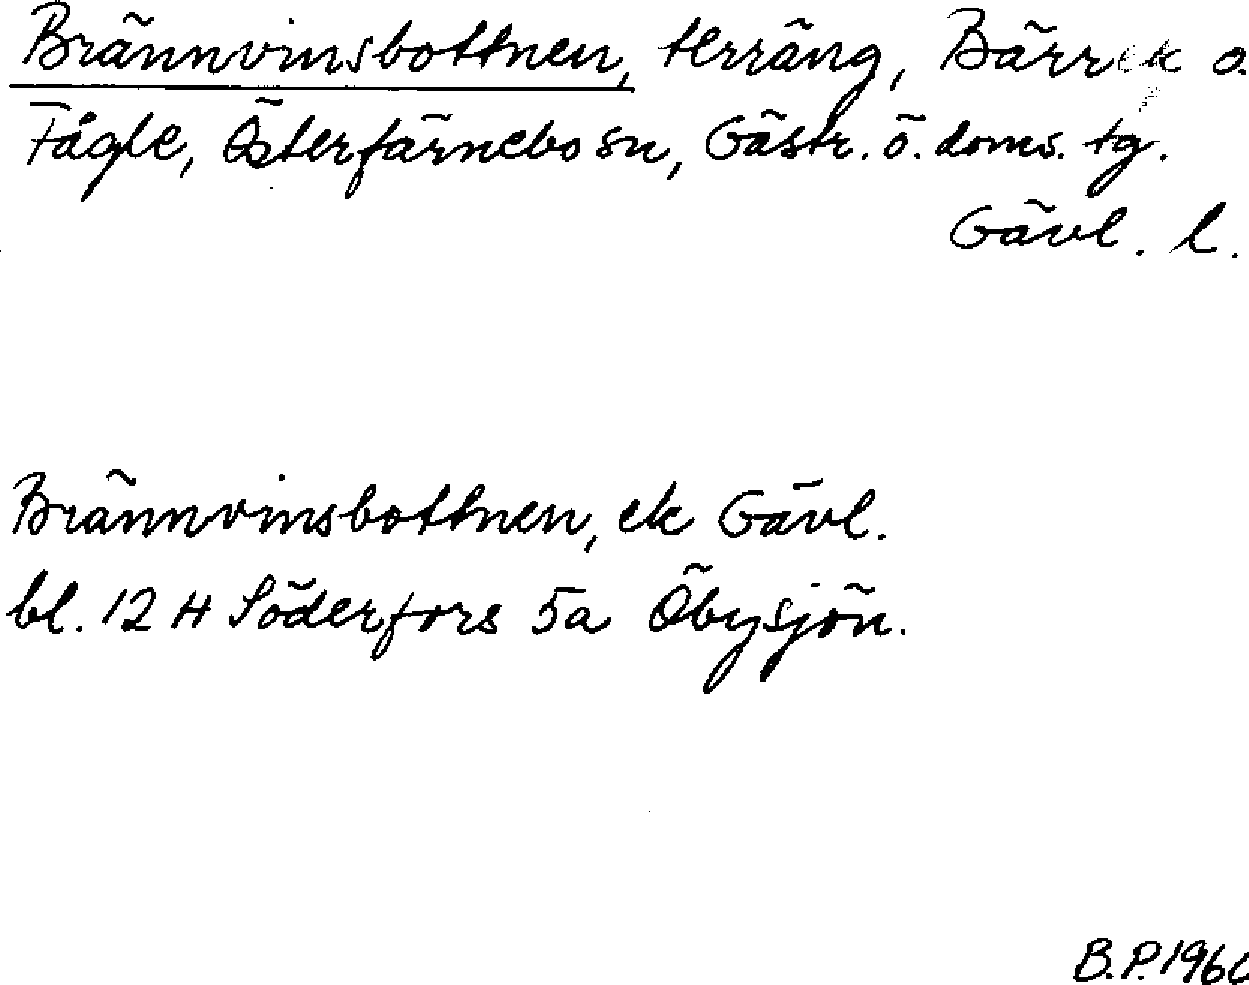 Brännvinsbottnen, terräng, Bärrek o.
Fågle, Österfärnebo sn, Gästr. ö. doms. tg.
Gävl. l.
Brännvinsbottnen, ek Gävl.
bl. 12 H Söderfors 5a Öbysjön.
B.P.